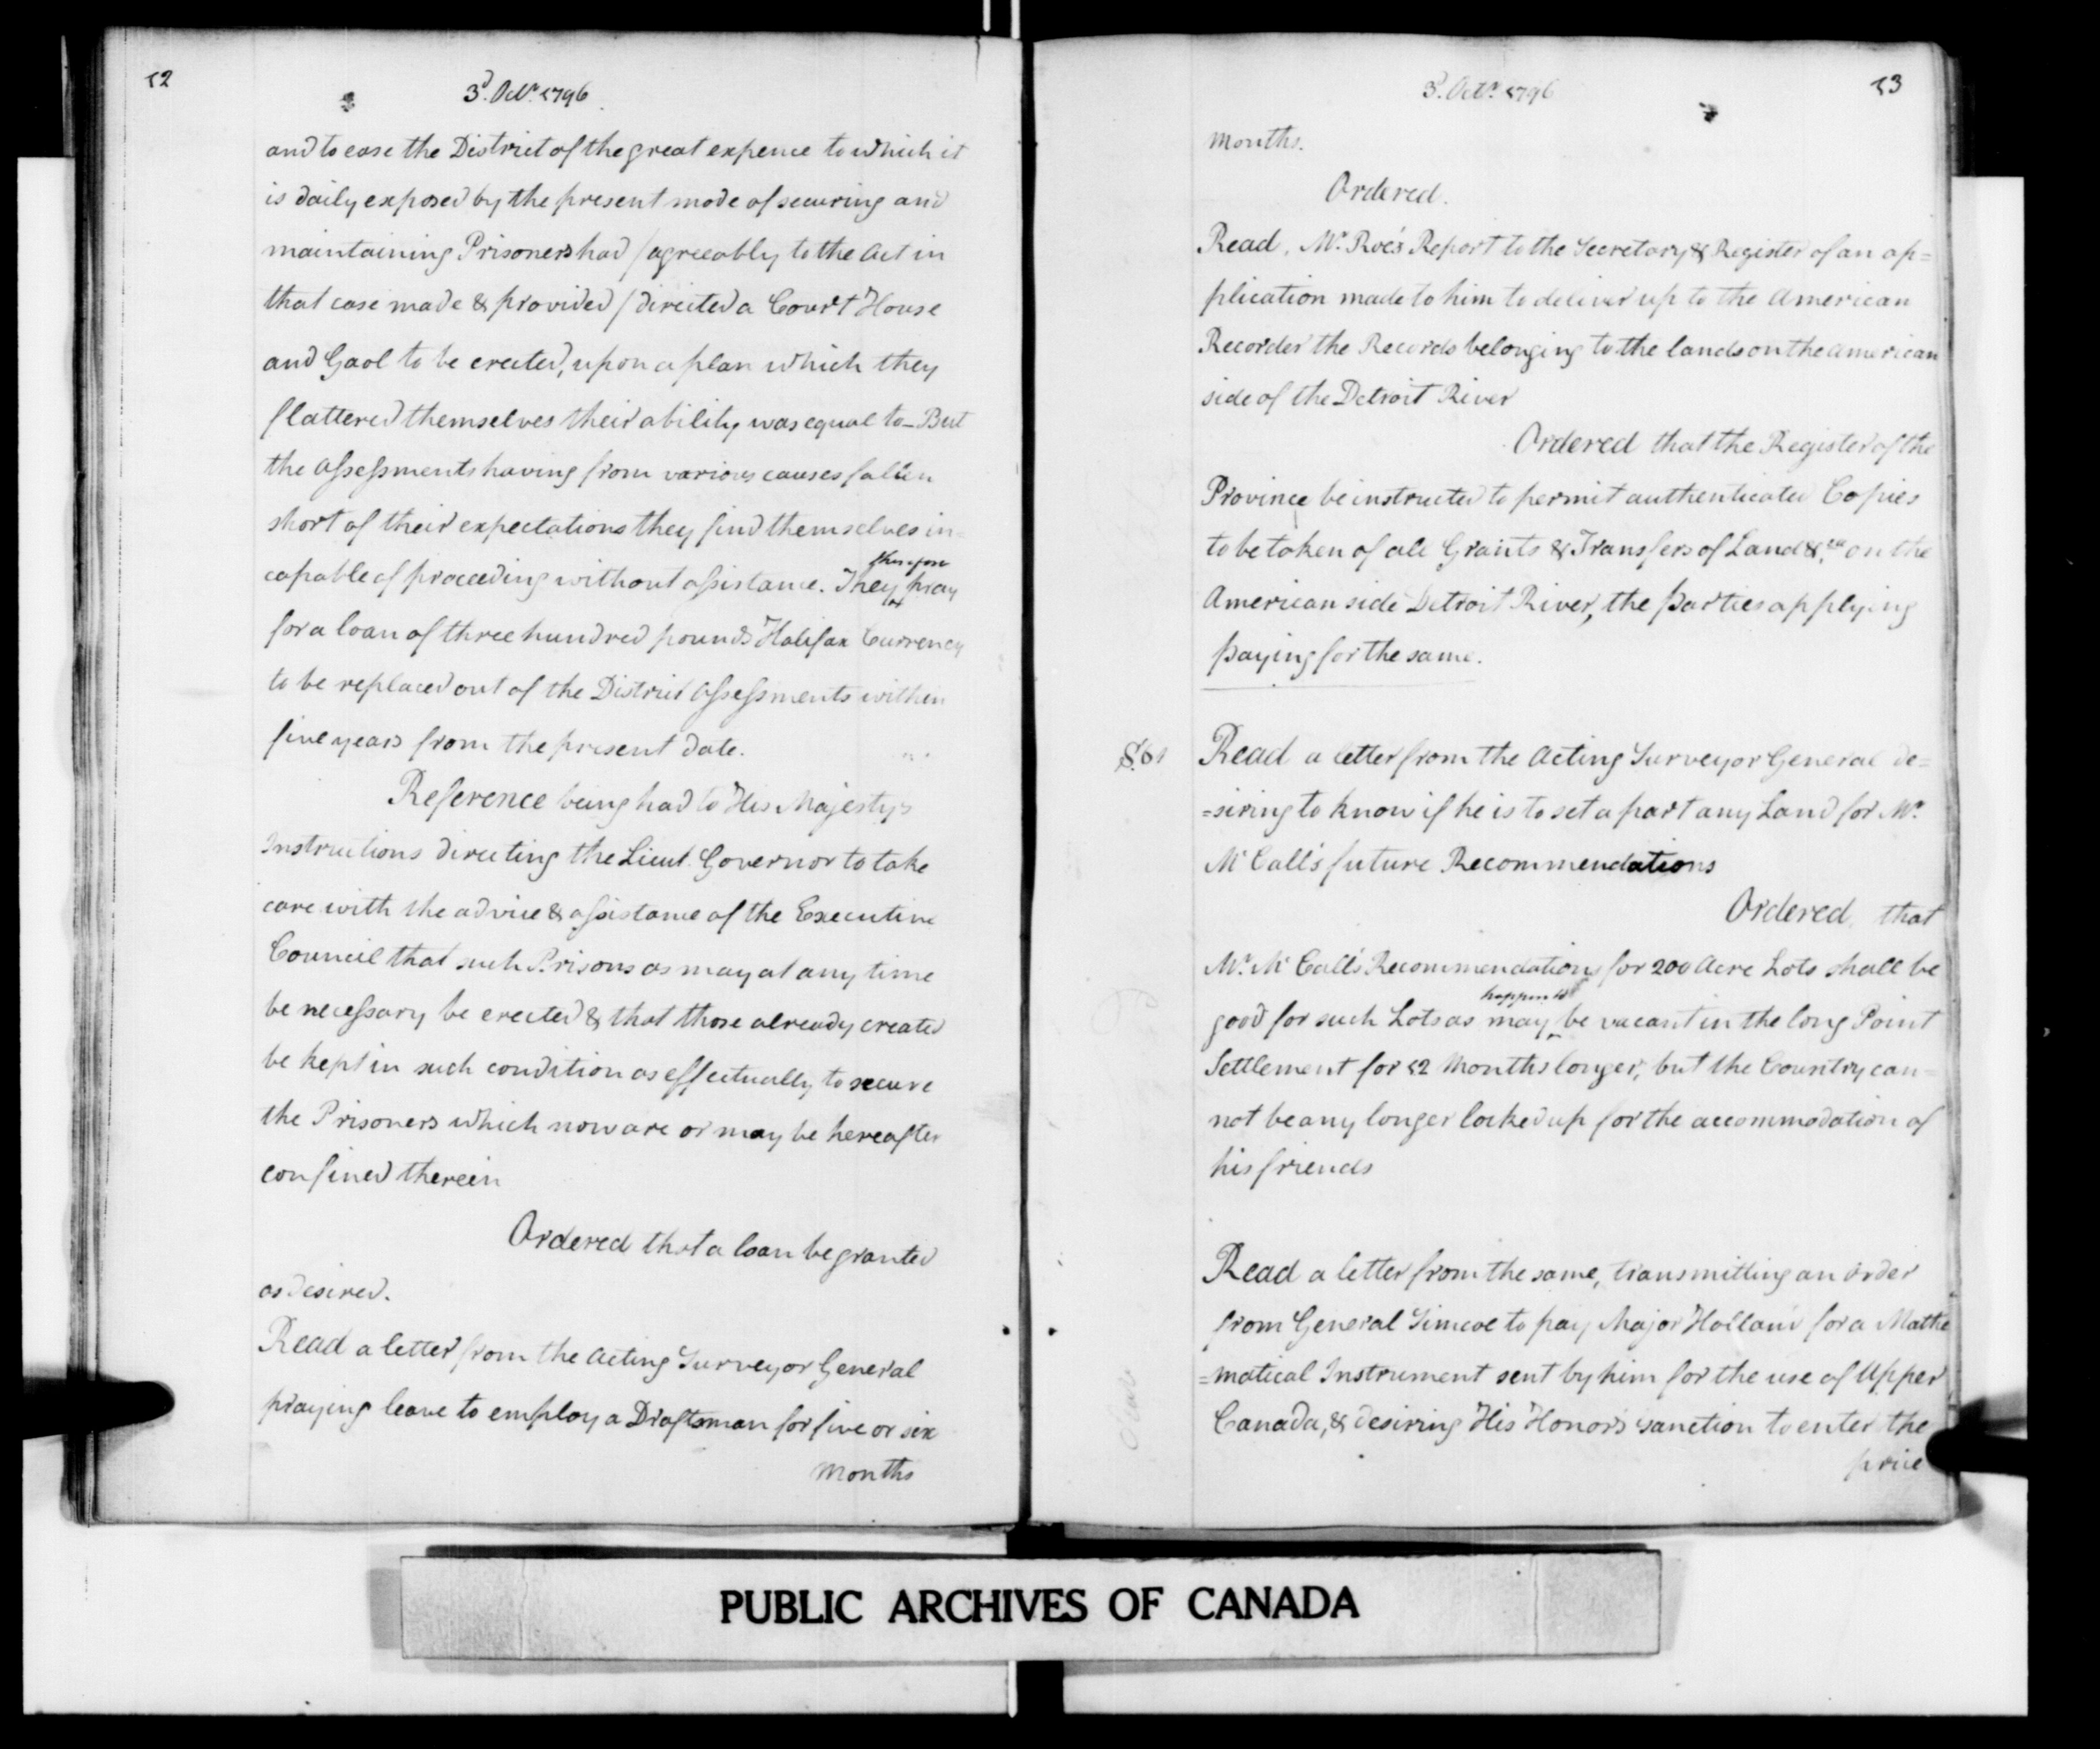 12
3d. Octr. 1796
and to ease the District of the great expence to which it
is daily exposed by the present mode of securing and
maintaining Prisoners had / agreeably to the Act in
that case made & provided / directed a Court House
and Gaol to be erected, upon a plan which they
flattered themselves their ability was equal to_ But
the Assessments having from various causes fallen
short of their expectations they find themselves in=
therefore
capable of proceeding without assistance. They pray
for a loan of three hundred pounds Halifax Currency
to be replaced out of the District Assessments within
five years from the present date.
Reference being had to His Majesty's
Instructions directing the Lieut. Governor to take
care with the advice & assistance of the Executive
Council that such Prisons as may at any time
be necessary be erected & that those already created
be kept in such condition as effectually to secure
the Prisoners which now are or may be hereafter
confined therein
Ordered that a loan be granted
as desired.
Read a letter from the Acting Surveyor General
praying leave to employ a Draftsman for five or six
Months
3d. Octr. 1796
13
Months.
Ordered.
Read, Mr. Roe's Report to the Secretary & Register of an ap=
plication made to him to deliver up to the American
Recorder the Records belonging to the lands on the American
side of the Detroit River
Ordered that the Register of the
Province be instructed to permit authenticated Copies
to be taken of all Grants & Transfers of Land &ca. on the
American side Detroit River, the parties applying
paying for the same.
Read a letter from the Acting Surveyor General de=
=siring to know if he is to set apart any Land for Mr.
McCall's future Recommendations
Ordered, that
Mr. McCall's Recommendations for 200 Acre Lots shall be
happen to
good for such Lots as may be vacant in the long Point
Settlement for 12 Months longer, but the Country can=
not be any longer locked up for the accommodation of
his friends
Read a letter from the same, transmitting an order
from General Simcoe to pay Major Holland for a Mathe
=matical Instrument sent by him for the use of Upper
Canada, & desiring His Honor's sanction to enter the
price
PUBLIC ARCHIVES OF CANADA